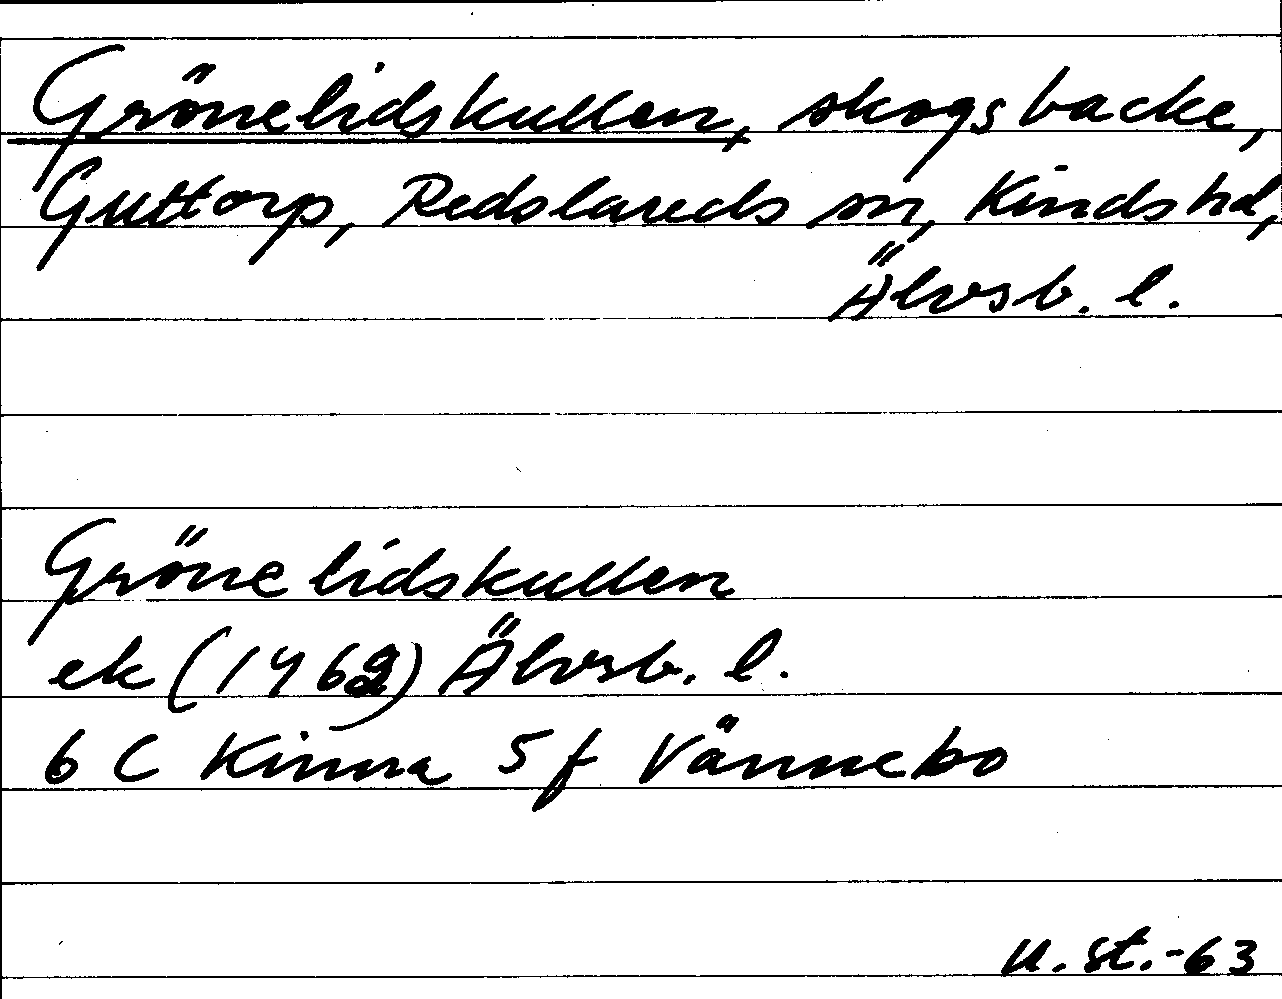 Grönelidskullen, skogsbacke,
Guttorp, Redslareds sn, Kinds hd,
Älvsb. l.
Grönelidskullen
ek (1962) Älvsb. l.
6 C Kinna 5 f Vännebo
U. St. -63